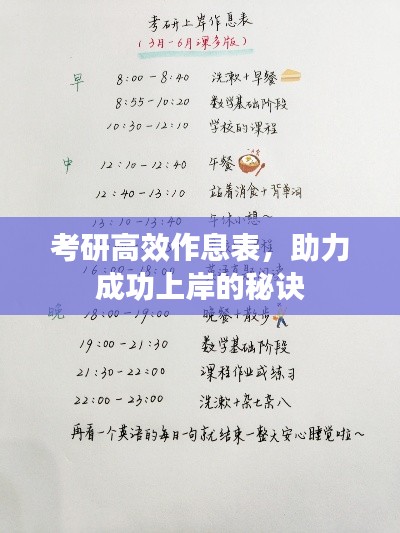 考研上岸作息表
(3月-6月课多版)
早
8:00-8:40 洗漱+早餐
8:55-10:20 数学基础阶段
10:30-12:10 学校的课程
中
12:10-12:40 午餐
12:40-13:10 站着消食+背单词
13:10-13:40 午休小想~
考研高效作息表，助力
成功上岸的秘诀
晚 18:00-19:00 晚餐+散步
19:00-21:30 数学基础阶段
21:30-22:00 课程作业或练习
22:00-23:00 洗漱+杂七杂八
再看一个英语的每日一句就结束一整天安心睡觉啦~